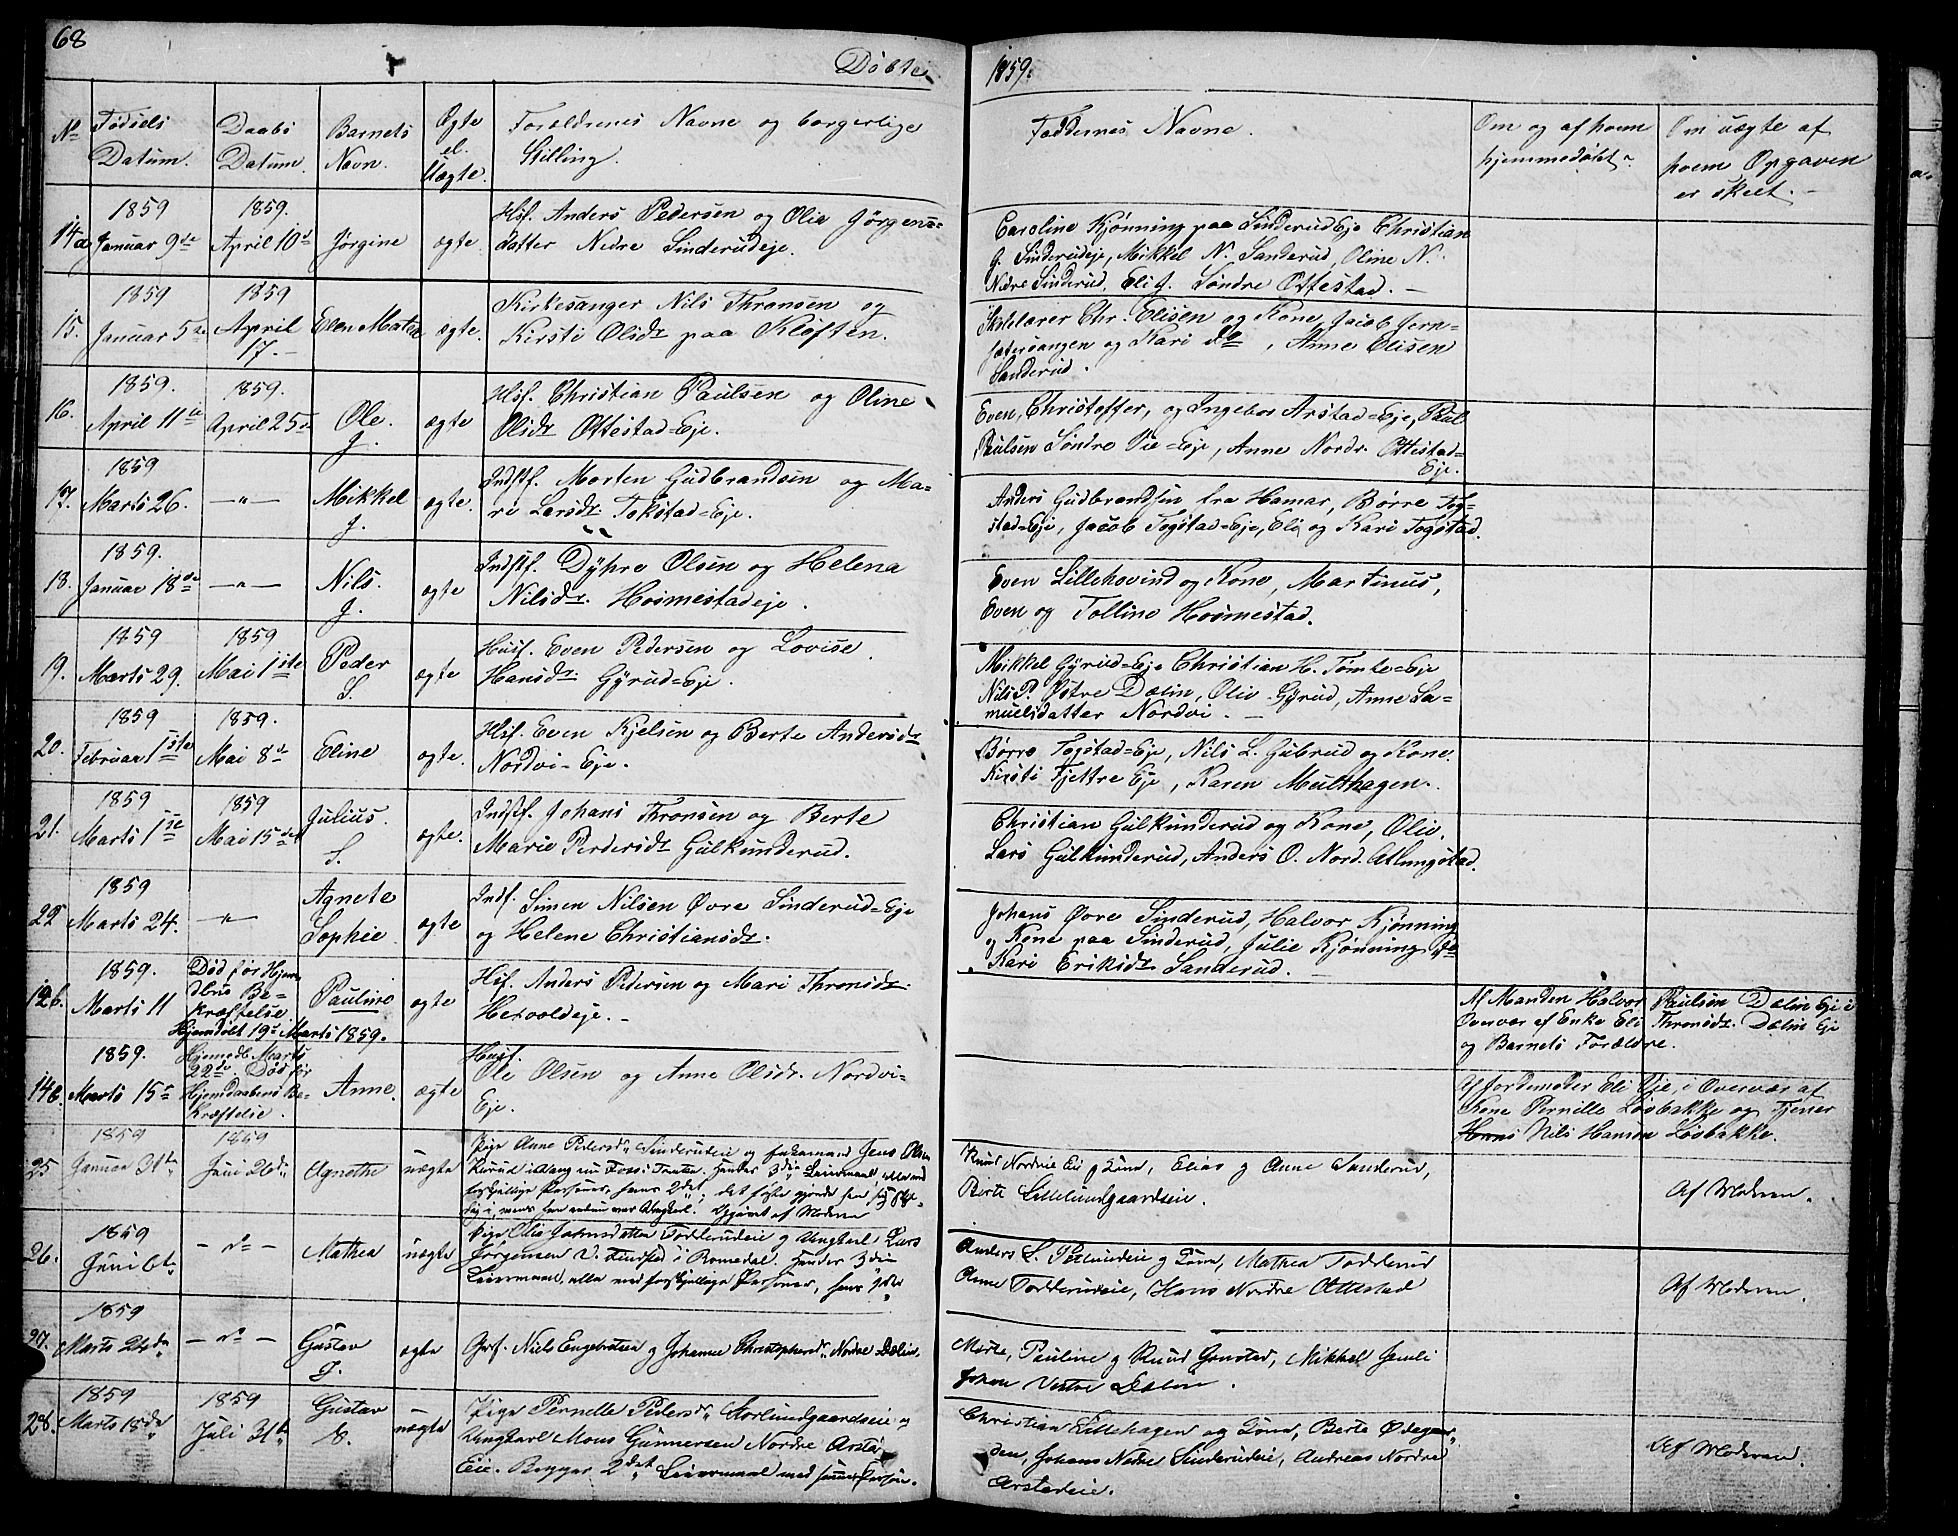 68
Döbte
1859.
No Fødsels Datum. Daabs Datum. Barnets Navn. Ægte el. Uægte. Forældrenes Navne og borgerlige Stilling. Faddernes Navne. Om og af hvem hjemmedøbt. Om uægte af hvem Opgaven er skeet.
14a 1859 Januar 9de 1859. April 10d Jørgine ægte.
Hsf. Anders Pedersen og Olia Jørgens=
datter Nedre Sinderudeje.
Caroline Kjønning paa SinderudEje Christian
G. Sinderudeje, Mikkel N. Sanderud, Oline N.
Nedre Sinderud, Eli J. Søndre Ottestad.
15. 1859 Januar 5te 1859 April 17. Elen Mathea ægte.
Kirkesanger Nils Thronsen og
Kirsti Olsdr paa Kløften.
Skolelærer Chr. Elisen og Kone, Jacob Jern=
sætersangen og Kari do, Anne Elisen
Sanderud.
16. 1859. April 11te 1859. April 25de Ole. J. ægte
Hsf. Christian Paulsen og Oline
Olsdr Ottestad=Eje.
Even, Christoffer, og Ingebor Arstad=Eje, Paul
Paulsen Søndre Vie=Eje, Anne Nordr. Ottestad=
Eje.
17. 1859 Marts 26. —"— Mikkel J. ægte.
Indstf. Morten Gudbrandsen og Ma=
ri Larsdr Tokstad=Eje.
Anders Gudbrandsen fra Hamar, Børre Tog=
stad=Eje, Jacob Togstad=Eje, Eli og Kari Togstad.
18. 1859. Januar 18de —"— Nils. J. ægte
Indstf. Dyhre Olsen og Helena
Nilsdr. Hosmestadeje.
Even Lillehovind og Kone, Martinus,
Even og Tolline Hosmestad.
19. 1859 Marts 29. 1859 Mai 1ste Peder S. ægte
Husf. Even Pedersen og Lovise
Hansdr. Gyrud=Eje.
Mikkel Gyrud=Eje Christian H. Tomte=Eje
Nils P. Østre Dælin, Oliv Gyrud, Anne Sa=
muelsdatter Nordvi.
20. 1859 Februar 1ste 1859. Mai 8d Eline ægte.
Hsf. Even Kjelsen og Berte Andersdr
Nordvi=Eje.
Børre Togstad=Eje, Nils L. Gubrud og Kone.
Kirsti Fjettre Eje, Karen Multhagen.
21. 1859 Marts 1ste 1859 Mai 15de Julius. S. ægte.
Indstf. Johans Thronsen og Berte
Marie Perdersdr Gulkunderud.
Christian Gulkunderud og Kone, Oliv.
Lars Gulkunderud, Anders O. Nord. Atlungstad.
22 1859 Marts 24. —"— Agnete Sophie ægte
Indf. Simen Nilsen Øvre Sinderud=Eje
og Helene Christiansdr.
Johans Øvre Sinderud, Halvor Kjønning
og Kone paa Sinderud, Julie Kjønning do
Kari Eriksdr Sanderud.
12b. 1859. Marts 11 Død før Hjem=
Kræftelse.
Hjemdøbt 19de Marts 1859.
Pauline ægte
Hsf. Anders Pedersen og Mari Thronsdr.
Hervoldeje.
Af Manden Halvor Paulsen Dælin Eje i
Overvær af Enke Eli Thronsdr. Dælin Eje
og Barnets Forældre.
14b. 1859. Marts 15de Hjemdb. Marts
22de. Død før
Hjemdaabens Be=
kræftelse.
Anne. ægte
Husf.
Ole Olsen og Anne Olsdr. Nordvi=
Eje.
Af Jordemoder Eli Vje, i Overvær af
Kone Pernille Løsbakke og Tjener
Nils Hansen Løsbakke.
25 1859 Januar 31te 1859 Juni 26de Agnethe uægte
Pige Anne Pedersdr Sinderudeie og
Knud Nordvie Eie og Kone, Elias og Anne Sanderud,
Birte Lillelundgaardseie.
Af Moderen.
26. 1859 Juni 6te — do — Mathea uægte
Pige Olia Johnsdatter Tødderudeie og Ungkarl Lars
Jørgensen i Romedal. Hendes 3die
Leiermaal, alle med forskjellige Personer, hans 1ste
Anders L. og Kone, Mathea Tødderud
Anne Tødderudeie, Hans Nordre Ottestad
Af Moderen.
27. 1859 Marts 24de — do — Gustav J. ægte
Niels Engebretsen og Johanne Christophersdr Nordre Dælin.
Marte, Pauline og Knud Grustad, Mikkel Jemli
Johan Vestre Dælin.
28. 1859 Marts 18de 1859 Juli 31te Gustav S. uægte
Pige Pernelle Pedersdr Storlundgaardseie og
Ungkarl Mons Gunnersen Nordre Arstad
Eie. Begges 2det Leiermaal med samme Person.
Christian Lillehagen og Kone, Berte Ødegaar=
den, Johans Nedre Sinderudeie, Andreas Nordre
Arstadeie.
Af Moderen.